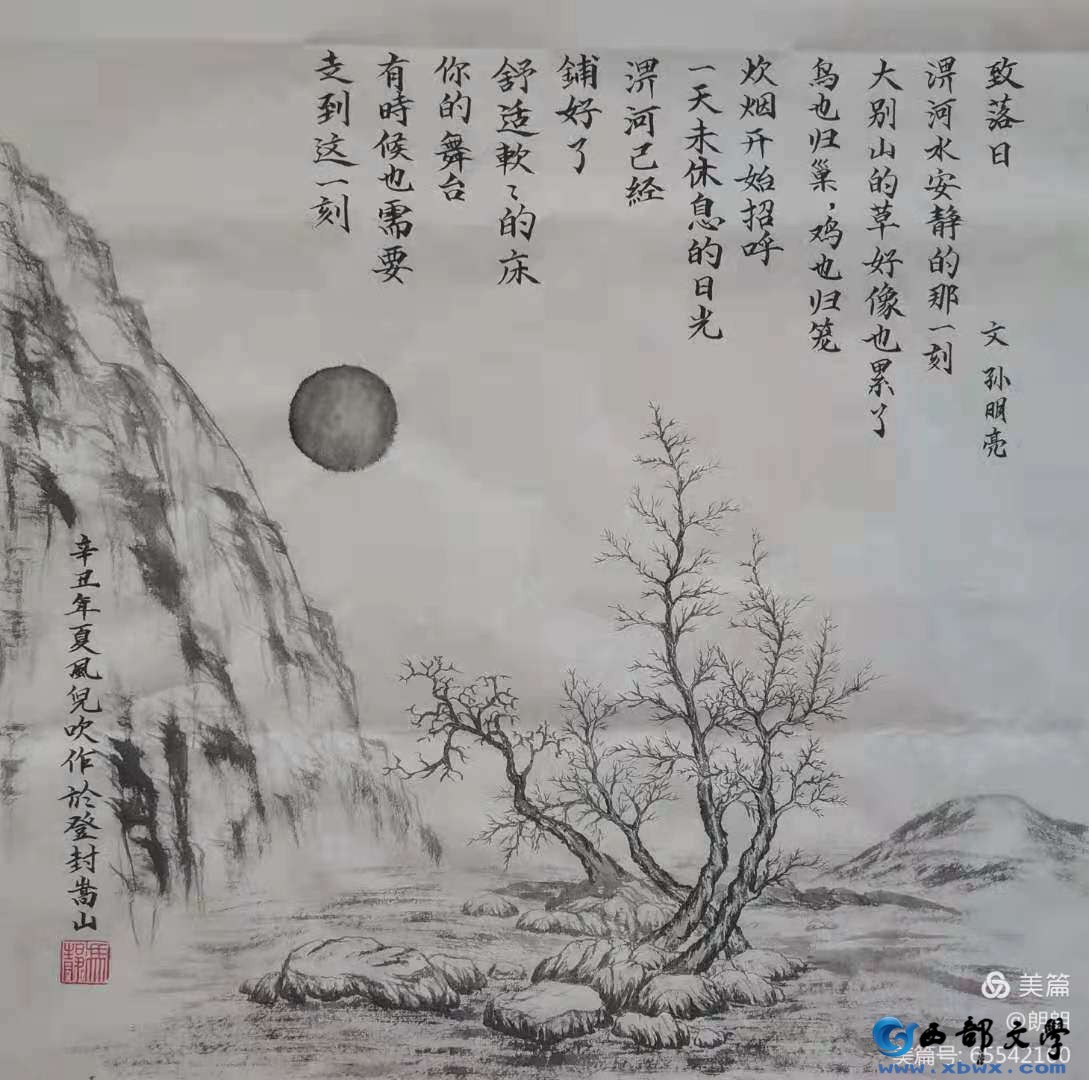 致落日
文 孙明亮
淠河水安静的那一刻
大别山的草好像也累了
鸟也归巢，鸡也归笼
炊烟开始招呼
一天未休息的日光
淠河已经
铺好了
舒适軟々的床
你的舞台
有時候也需要
走到这一刻
辛丑年夏風兒吹作於登封嵩山
美篇
@朗朗
西部文學
美篇号: 65542160
www.xbwx.com